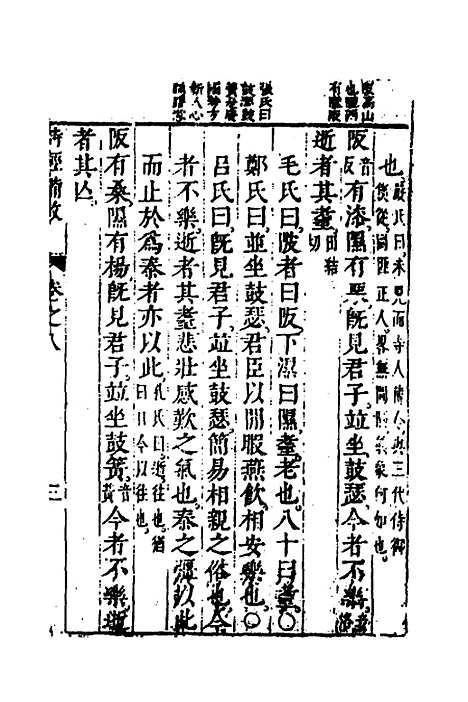 張氏曰
也。嚴氏曰未見而寺人傳令與三代侍御
僕從罔匪正人
氣象何如也。
阪音反有漆隰有栗旣見君子竝坐鼓瑟今者不樂
逝者其耋田結切
毛氏曰陂者曰阪下濕曰隰耋老也八十曰耋○
鄭氏曰並坐鼓瑟君臣以閒暇燕飲相安樂也○
呂氏曰旣見君子竝坐鼓瑟簡易相親之俗也今
者不樂逝者其耋悲壯感歎之氣也秦之彊以此
而止於爲秦者亦以此孔氏曰逝往也猶曰日今以往也
阪有桑隰有楊旣見君子竝坐鼓簧音黃今者不樂逝
者其亡
卷之八